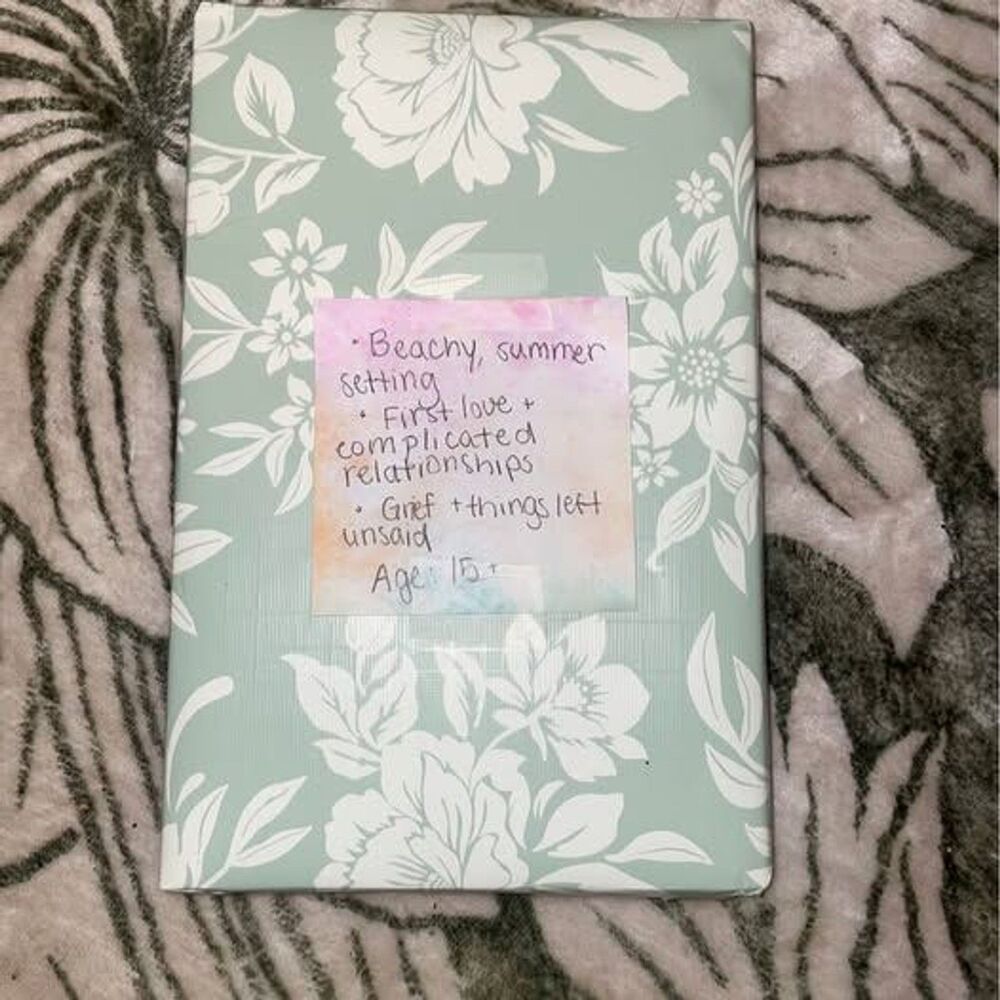 · Beachy, summer
setting
· First love +
complicated
relationships
· Grief + things left
unsaid
Age: 15+